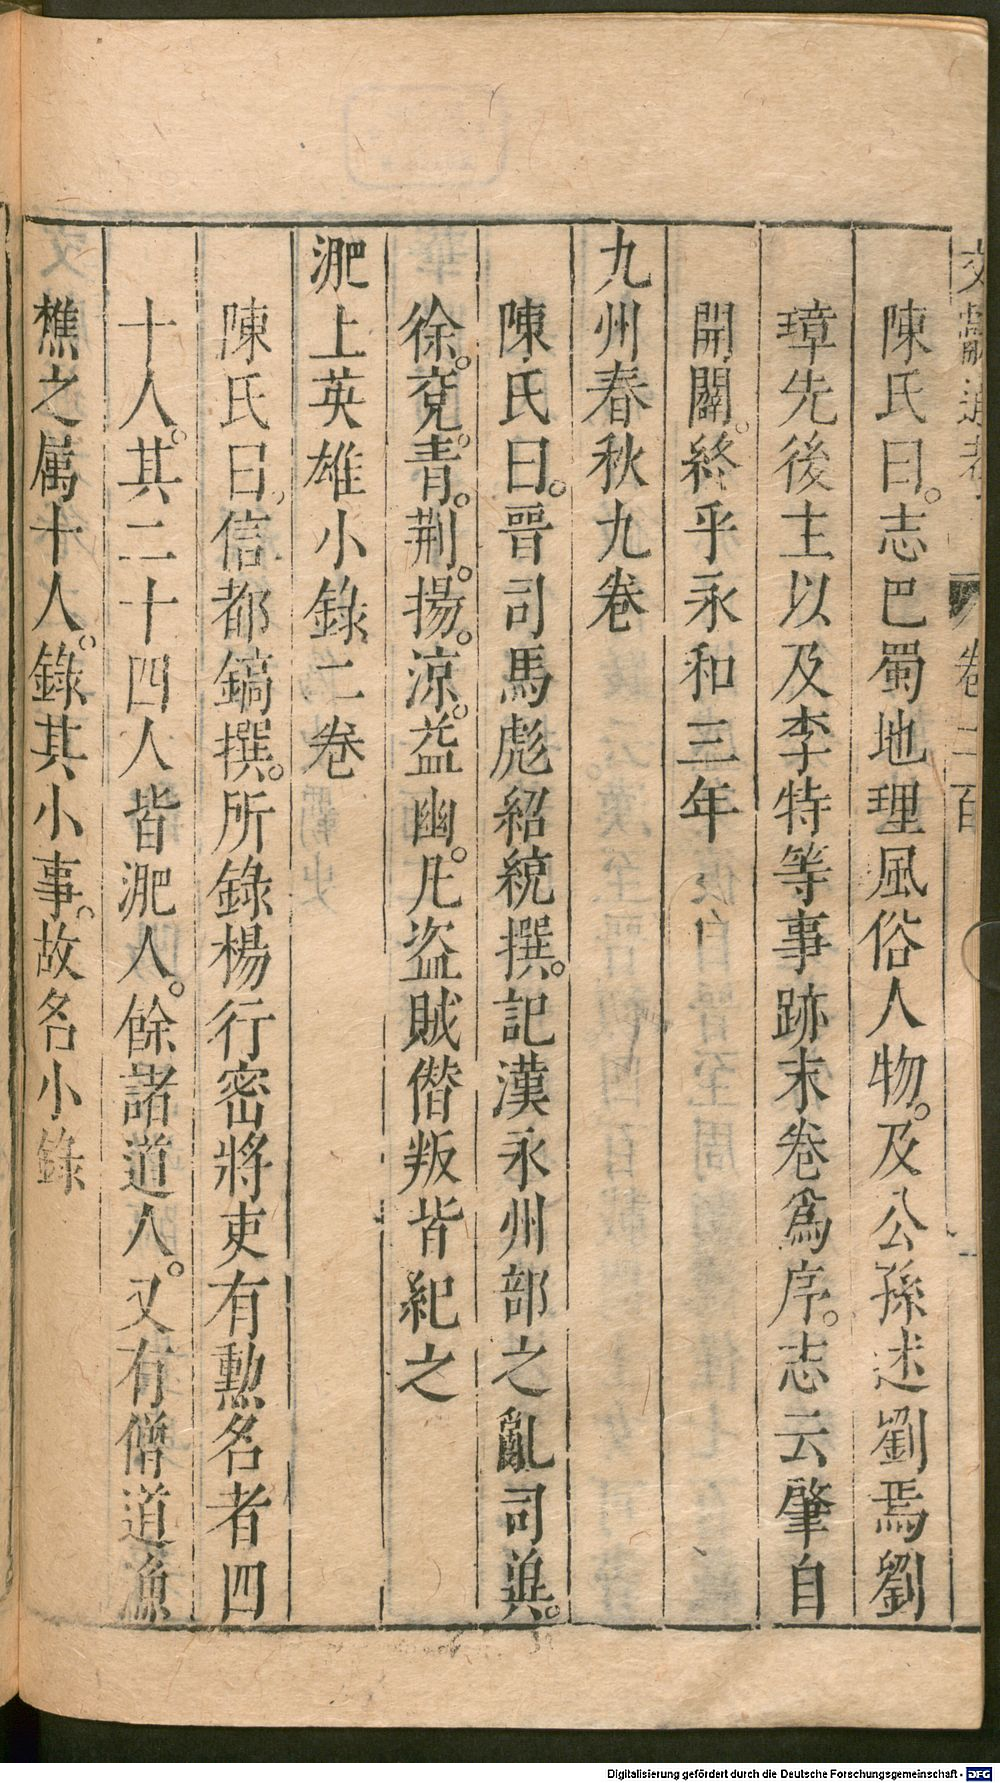 文獻通考 卷二百
陳氏曰。志巴蜀地理風俗人物。及公孫述劉焉劉
璋先後主以及李特等事跡末卷爲序。志云肇自
開闢。終乎永和三年
九州春秋九卷
陳氏曰。晉司馬彪紹統撰。記漢永州部之亂司兾。
徐。兗。青。荆。揚。涼。益幽。凡盜賊僭叛皆紀之
淝上英雄小錄二卷
陳氏曰。信都鎬撰。所錄楊行密將吏有勲名者四
十人。其二十四人皆淝人。餘諸道人。又有僧道漁
樵之属十人。錄其小事。故名小錄
Digitalisierung gefördert durch die Deutsche Forschungsgemeinschaft - DFG